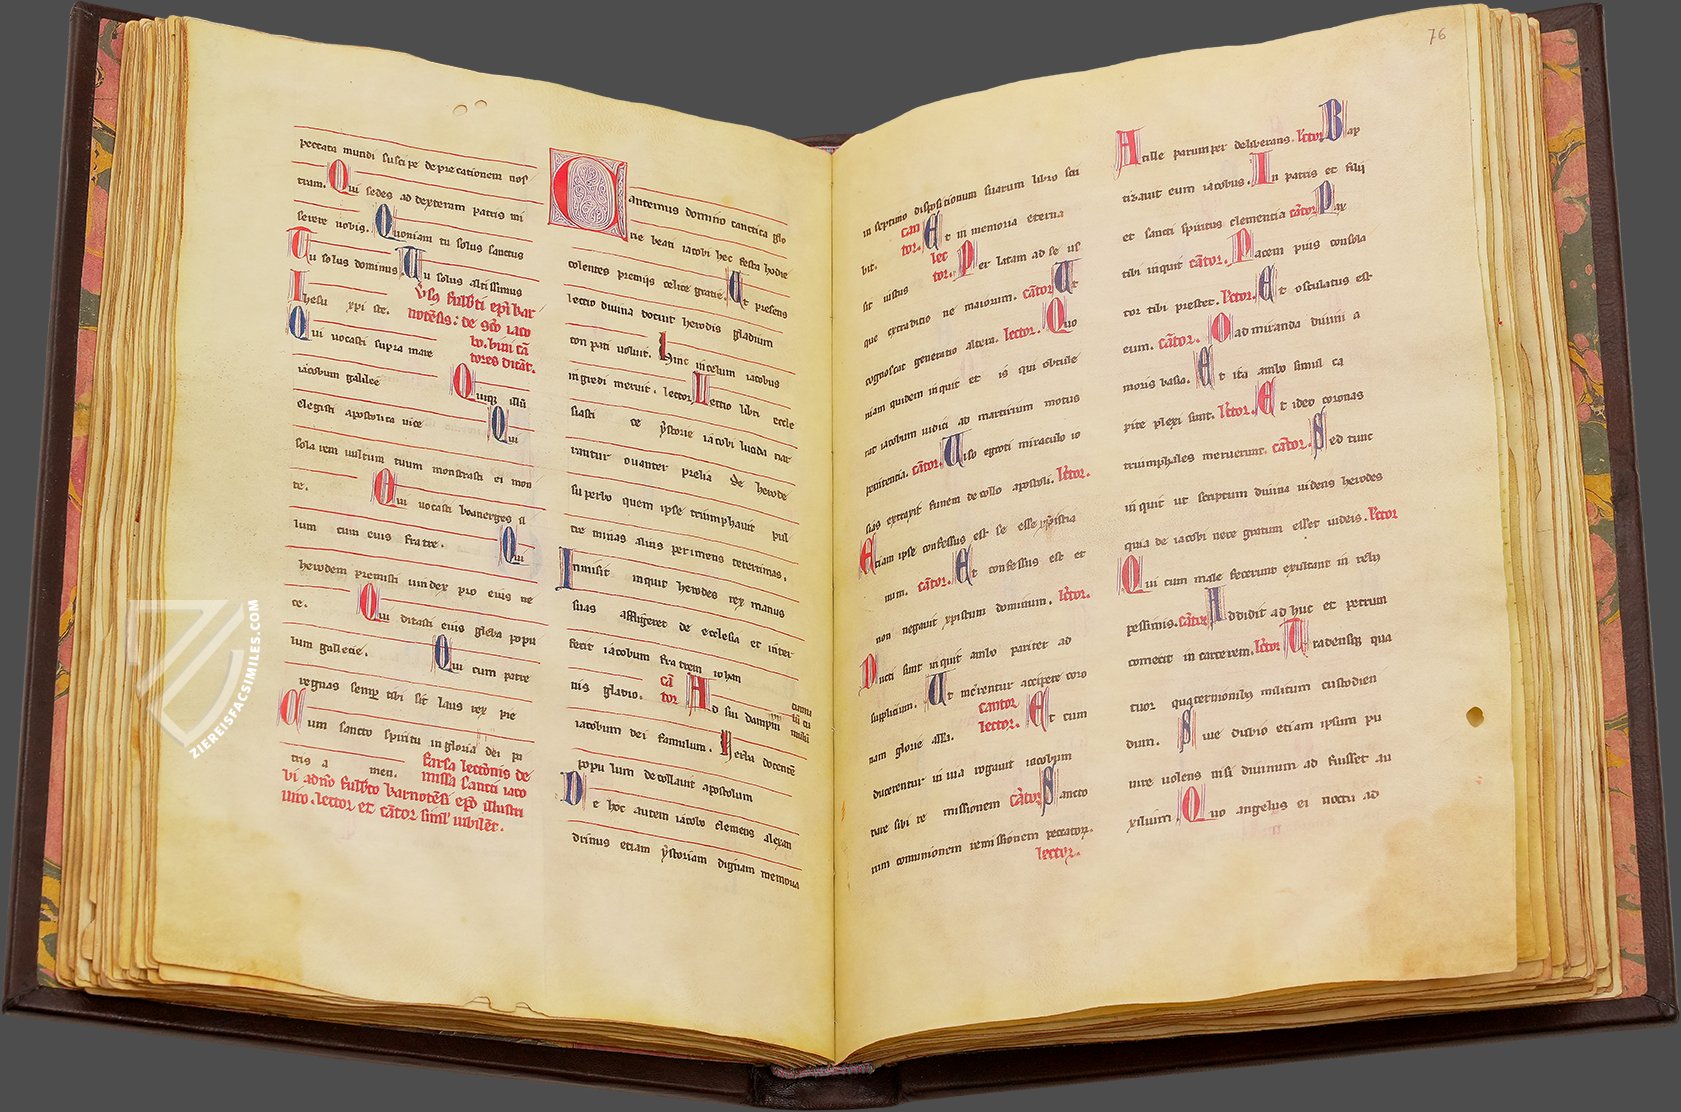 peccata mundi suscipe deprecationem nos
tram. Qui sedes ad dexteram patris mi
serere nobis. Quoniam tu solus sanctus
Tu solus dominus. Tu solus altissimus
Ihesu xpi ste. Vsꝫ fulb̄ti ep̄i kar
notēsis: de sc̄o iaco
bo. bini cā
tores dicāt.
Qui uocasti supra mare
iacobum galilee Quiqꝫ illū
elegisti apostolica uice Qui
sola rem uultum tuum monstrasti ei mon
te. Qui uocasti boanerges il
lum cum eius fratre. Qui
herodem premisti uindex pro eius ne
ce. Qui ditasti eius gleba popu
lum gallecie. Qui cum patre
regnas semꝑ tibi sit laus rex pie
Cum sancto spiritu in gloria dei pa
tris a men. farsa lectōnis de
missa sancti iaco
bi a dn̄o fulb̄to karnotēsi ep̄o illustri
uiro. lector et cātor simł iubilēt.
Cantemus domino cantica glo
rie beati iacobi hec festa hodie
colentes premijs celice gratie. Et presens
lectio diuina docint herodis gladium
con pati uoluit. Hinc in celum iacobus
ingredi meruit. lector Lectio libri eccle
siasti ce ystorie iacobi lucida nar
rantur ouanter prelia de herode
superbo quem ipse triumphauit pul
tre minas alius perimens teterrimas.
Inmisit inquit herodes rex manus
suas affligeret de ecclesia et inter
fecit iacobum fratrem iohan
nis gladio. cā
tor Ad sui dampnū
iacobum dei famulum. Herba docentē
popu lum decollauit apostolum
De hoc autem iacobo clemens alexan
drinus etiam ystoriam dignam memoria
76
in septimo dispositionum suarum libro scri
bit. can
tor. Et in memoria eterna
sit iustus lec
tor. Per litam ad se us
que ex traditio ne maiorum. cātor Vt
cognoscat generatio altera. lector. Quo
niam quidem inquit et is qui obtule
rat iacobum iudici ad martirium motus
penitentia. cātor. Viso egroti miraculo io
sias extraxit funem de collo apostoli. lc̄tor.
Etiam ipse confessus est se esse xpistia
num. cātor. Et confessus est et
non negauit xpistum dominum. lc̄tor.
Ducti sunt inquit ambo pariter ad
supplicium. Vt merentur accipere coro
nam glorie alla. cantor
lector. Et cum
ducerentur in uia rogauit iacobum
dare sibi re missionem cātor Sancto
rum comunionem remissionem peccatoꝝ.
lector.
Atille parumper deliberans. lc̄tor Bap
tizauit eum iacobus. In patris et filij
et sancti spiritus clementia cātor Pax
tibi inquit cātor. Pacem pius consola
tor tibi prestet. lc̄tor. Et osculatus est
eum. cātor. O ad miranda diuini a
moris basia. Et ita ambo simul ca
pite plexi sunt. lc̄tor. Et ideo coronas
triumphales meruerunt. cātor. Sed tunc
in quit ut scriptum diuina uidens herodes
quia de iacobi nece gratum esset iudeis. lc̄tor
Qui cum male fecerunt exultant in rebꝫ
pessimis. cātor Addidit ad huc et petrum
comecit in carcerem. lc̄tor Tradensqꝫ qua
tuor quaternionibꝫ militum custodien
dum. Siue dubio etiam ipsum pu
nire uolens nisi diuinum ad fuisset au
xilium Quo angelus ei noctu ad
ZIEREISFACSIMILES.COM